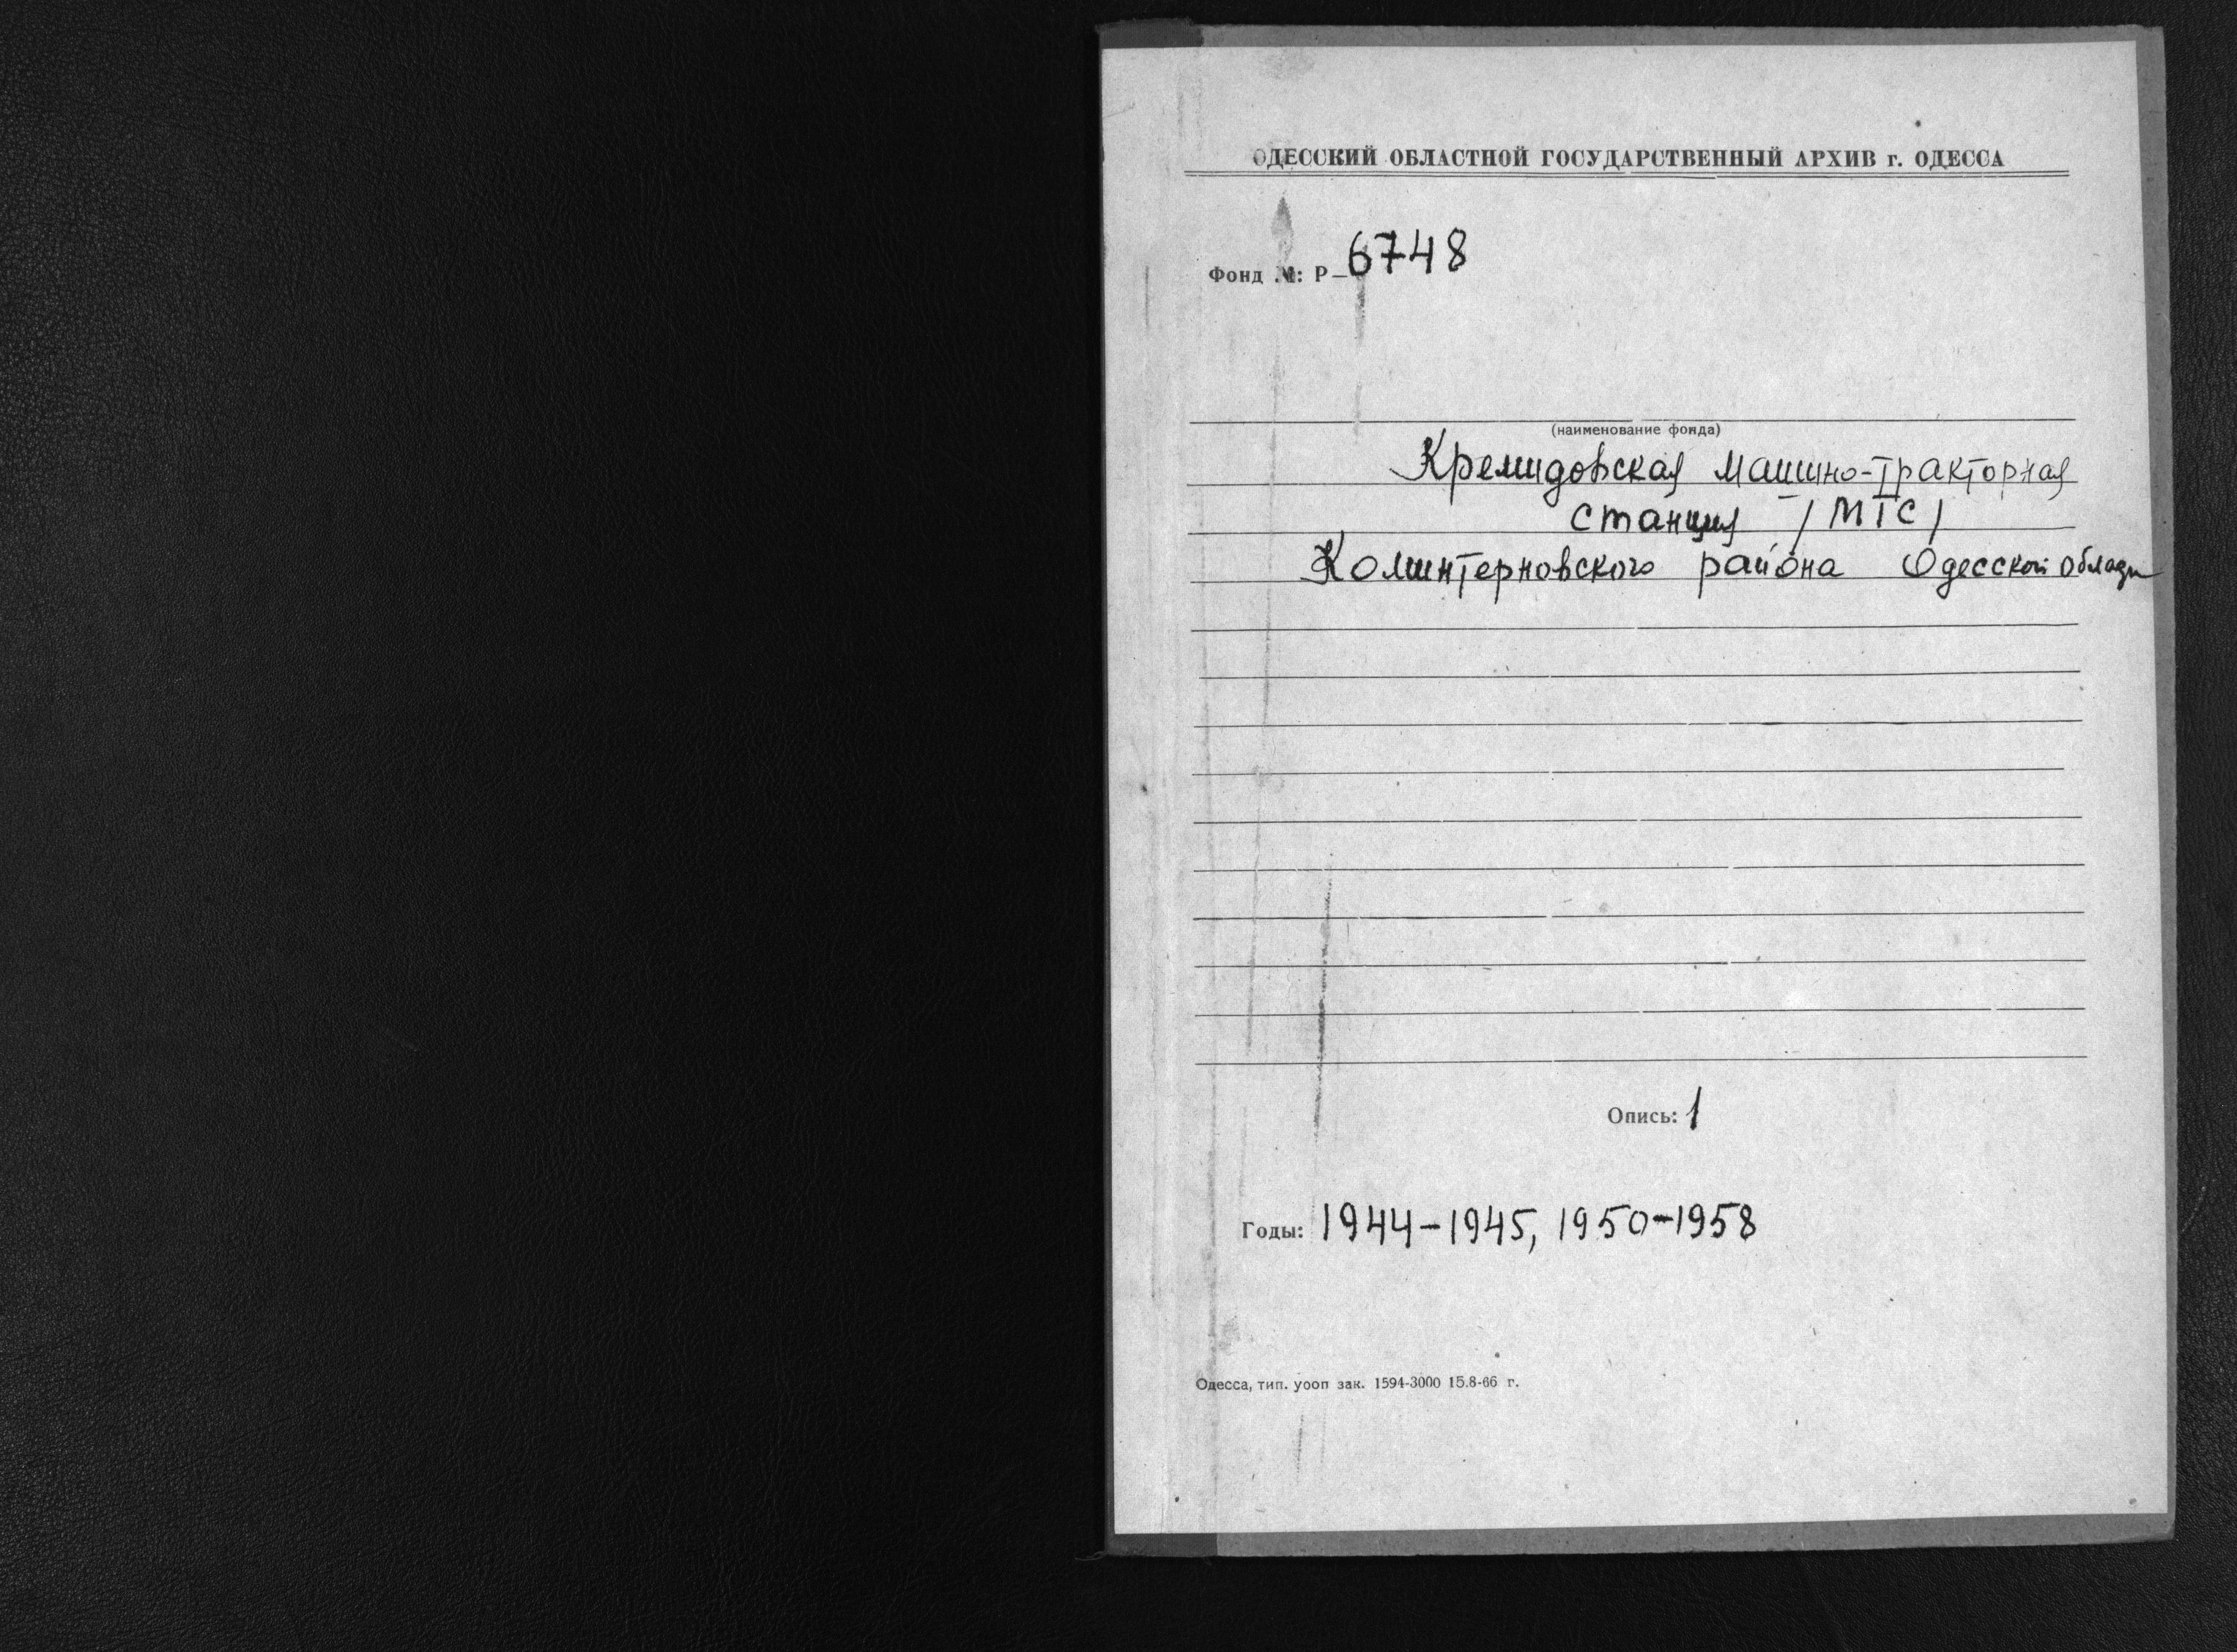 ОДЕССКИЙ ОБЛАСТНОЙ ГОСУДАРСТВЕННЫЙ АРХИВ г. ОДЕССА
Фонд №: Р—6748
(наименование фонда)
Кремидовская машино-тракторная
станция /МТС/
Коминтерновского района Одесской области
Опись: 1
Годы: 1944-1945, 1950-1958
Одесса, тип. уооп зак. 1594-3000 15.8-66 г.